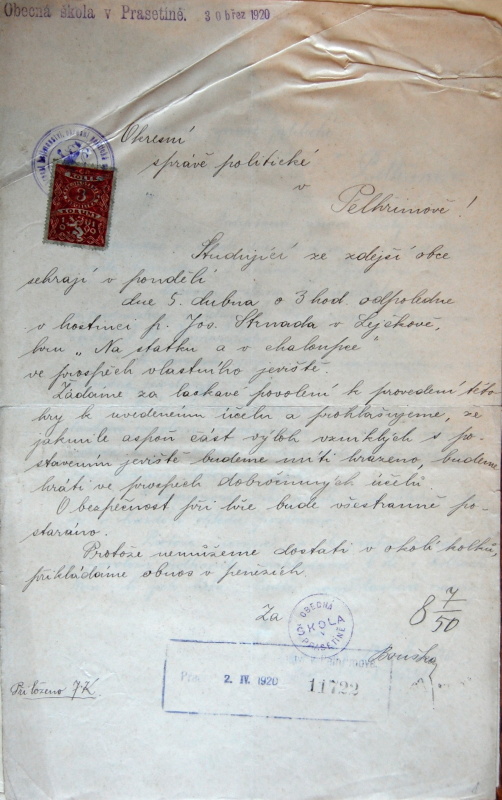 Obecná škola v Prasetině. 30 břez 1920
Okresní
správě politické
v
Pelhřimově!
KOLEK
3
KORUNY
Studující ze zdejší obce
sehrají v pondělí
dne 5. dubna o 3 hod. odpoledne
v hostinci p. Jos. Strnada v Lejčkově,
hru „Na statku a v chaloupce"
ve prospěch vlastního jeviště.
Žádáme za laskavé povolení k provedení této
hry k uvedenému účelu a prohlašujeme, že
jakmile aspoň část výloh vzniklých s po-
stavením jeviště budeme míti hrazeno, budeme
hráti ve prospěch dobročinných účelů.
O bezpečnost při hře bude všestranně po-
staráno.
Protože nemůžeme dostati v okolí kolků,
přikládáme obnos v penězích
Za
OBECNÁ
ŠKOLA
V
PRASETINĚ
8 7/50
2. IV. 1920
11722
Přiloženo 7 K